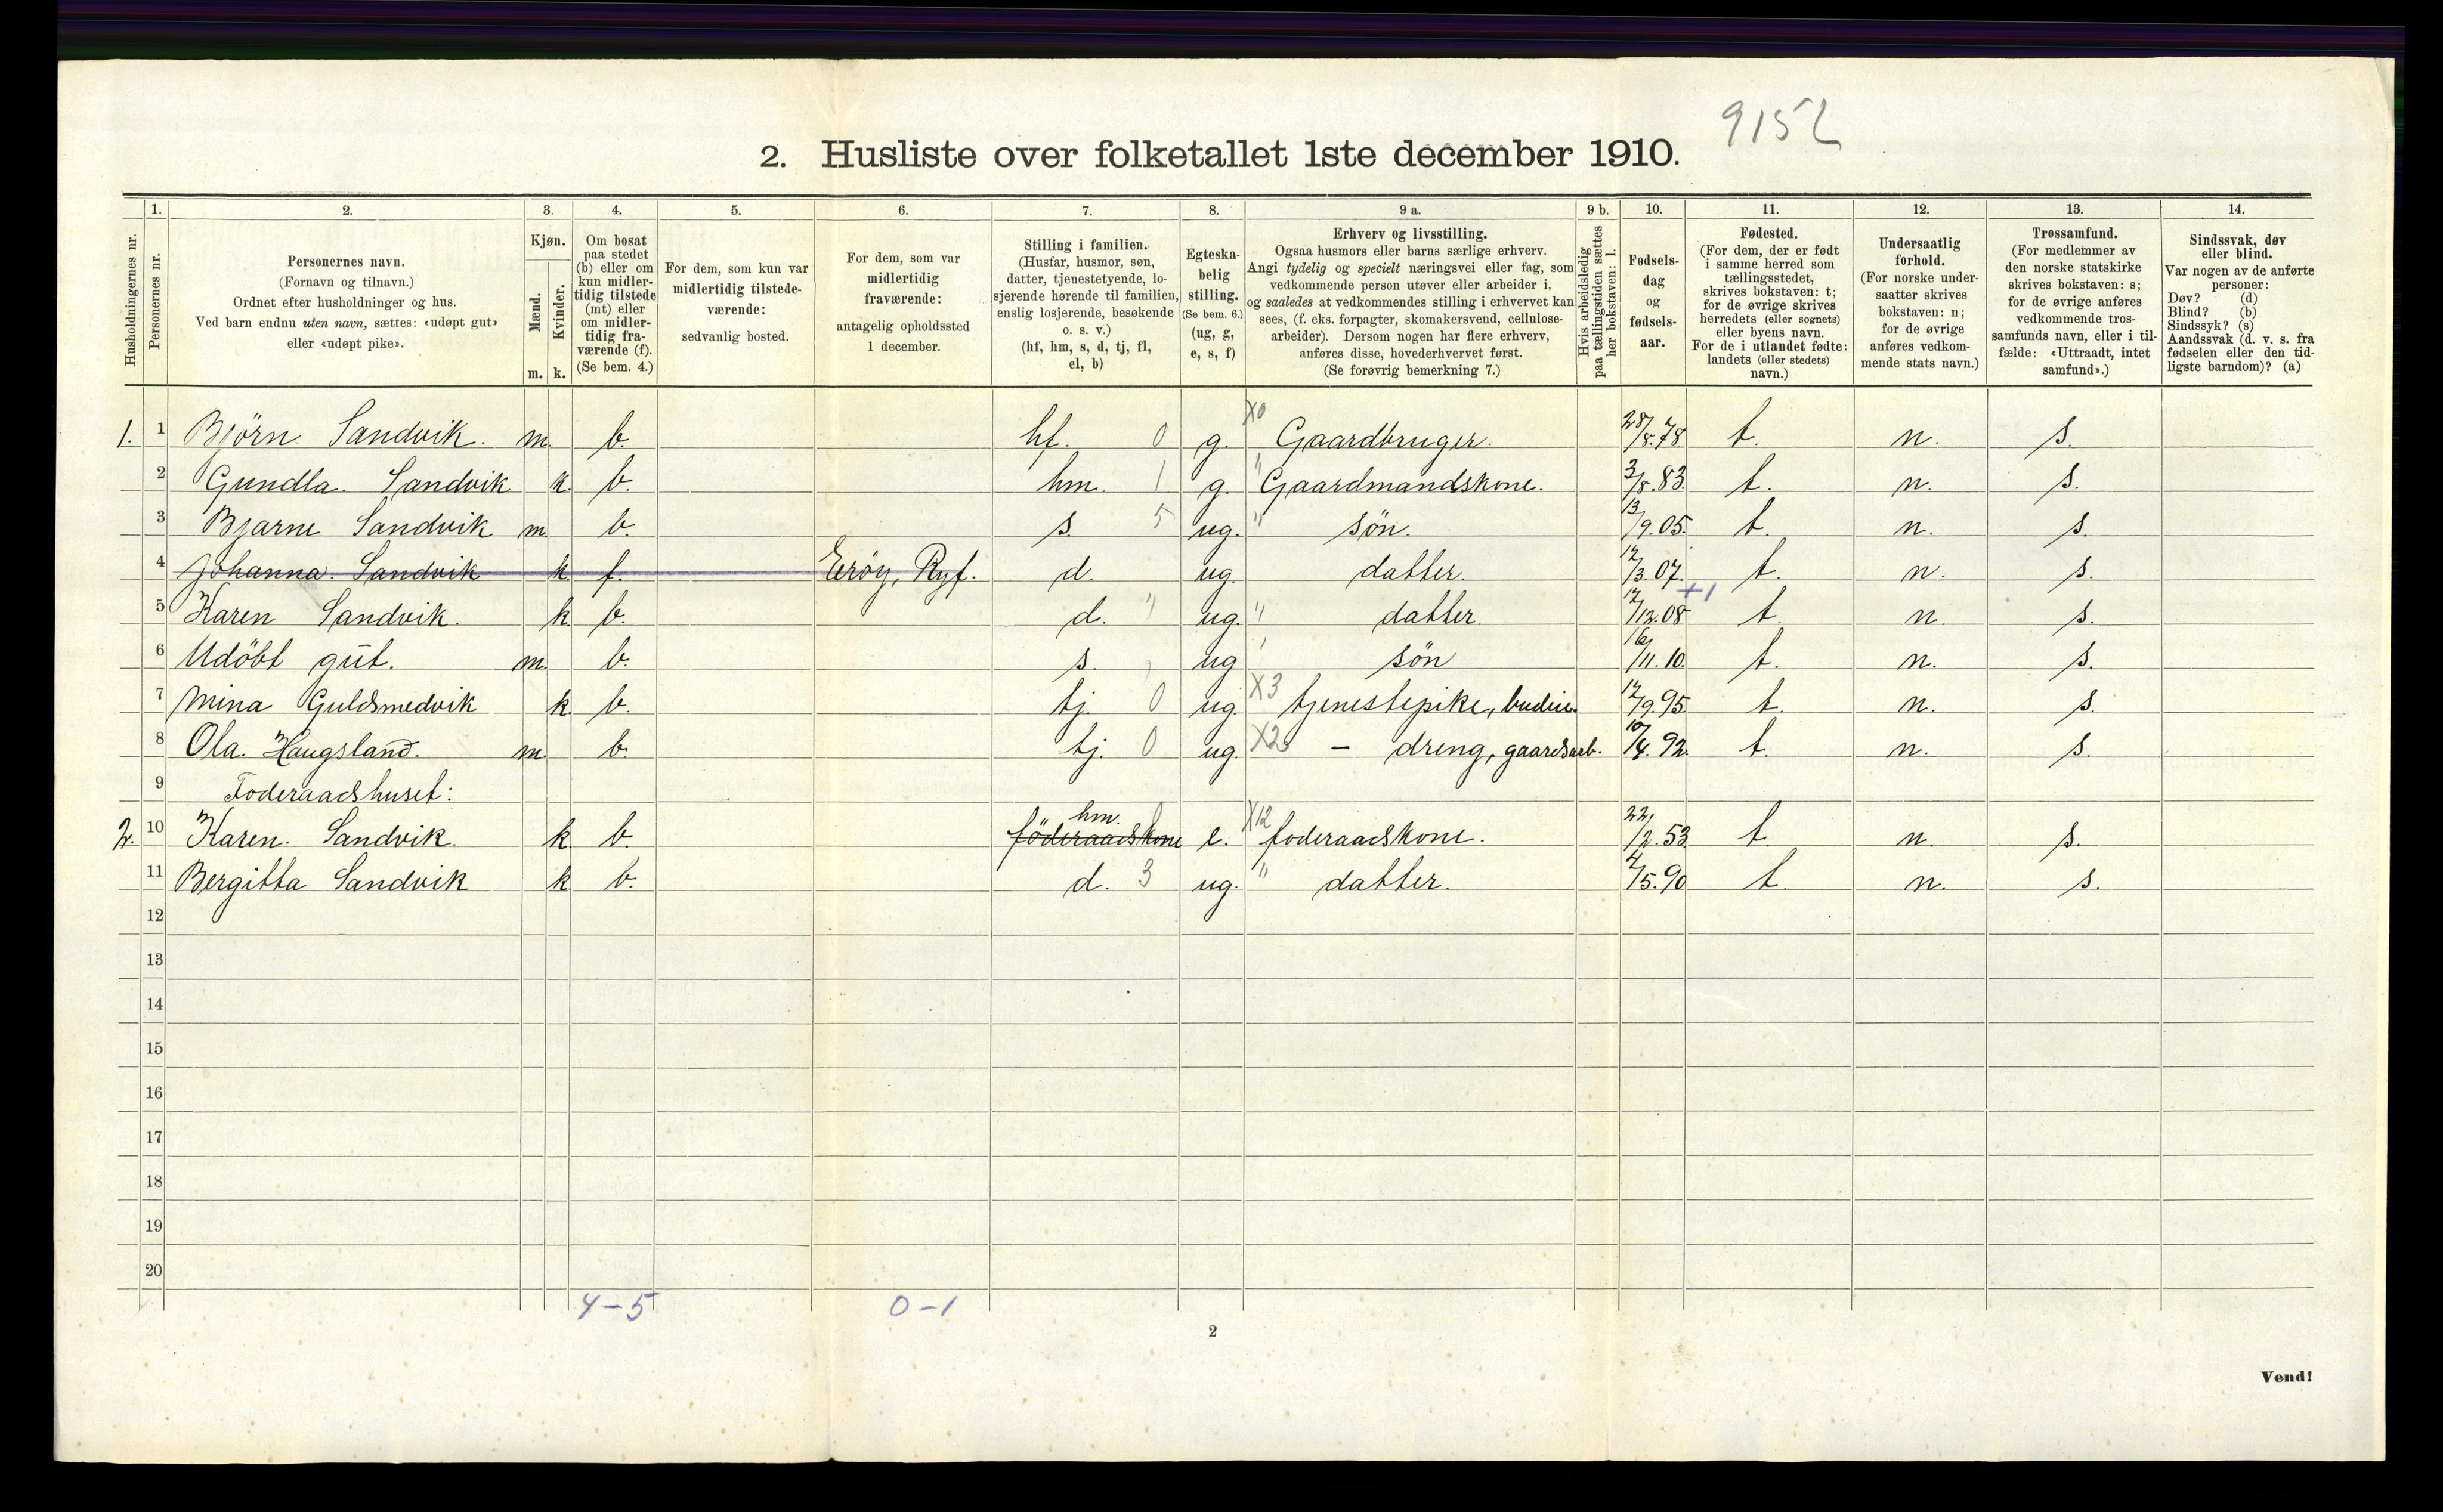 9152
2. Husliste over folketallet 1ste december 1910.
1. 2. 3. 4. 5. 6. 7. 8. 9 a. 9 b. 10. 11. 12. 13. 14.
Husholdningernes nr.
Personernes nr.
Personernes navn.
(Fornavn og tilnavn.)
Ordnet efter husholdninger og hus.
Ved barn endnu uten navn, sættes: «udøpt gut»
eller «udøpt pike».
Kjøn.
Mænd.
Kvinder.
m. k.
Om bosat
paa stedet
(b) eller om
kun midler-
tidig tilstede
(mt) eller
om midler-
tidig fra-
værende (f).
(Se bem. 4.)
For dem, som kun var
midlertidig tilstede-
værende:
sedvanlig bosted.
For dem, som var
midlertidig
fraværende:
antagelig opholdssted
1 december.
Stilling i familien.
(Husfar, husmor, søn,
datter, tjenestetyende, lo-
sjerende hørende til familien,
enslig losjerende, besøkende
o. s. v.)
(hf, hm, s, d, tj, fl,
el, b)
Egteska-
belig
stilling.
(Se bem. 6.)
(ug, g,
e, s, f)
Erhverv og livsstilling.
Ogsaa husmors eller barns særlige erhverv.
Angi tydelig og specielt næringsvei eller fag, som
vedkommende person utøver eller arbeider i,
og saaledes at vedkommendes stilling i erhvervet kan
sees, (f. eks. forpagter, skomakersvend, cellulose-
arbeider). Dersom nogen har flere erhverv,
anføres disse, hovederhvervet først.
(Se forøvrig bemerkning 7.)
Hvis arbeidsledig
paa tællingstiden sættes
her bokstaven: l.
Fødsels-
dag
og
fødsels-
aar.
Fødested.
(For dem, der er født
i samme herred som
tællingsstedet,
skrives bokstaven: t;
for de øvrige skrives
herredets (eller sognets)
eller byens navn.
For de i utlandet fødte:
landets (eller stedets)
navn.)
Undersaatlig
forhold.
(For norske under-
saatter skrives
bokstaven: n;
for de øvrige
anføres vedkom-
mende stats navn.)
Trossamfund.
(For medlemmer av
den norske statskirke
skrives bokstaven: s;
for de øvrige anføres
vedkommende tros-
samfunds navn, eller i til-
fælde: «Uttraadt, intet
samfund».)
Sindssvak, døv
eller blind.
Var nogen av de anførte
personer:
Døv? (d)
Blind? (b)
Sindssyk? (s)
Aandssvak (d. v. s. fra
fødselen eller den tid-
ligste barndom)? (a)
1. 1 Björn Sandvik. m. b. hf. 0 g. X0 Gaardbruger. 28/8.78 t. n. s.
2 Gundla. Sandvik k. b. hm. 1 g. " Gaardmandskone. 3/8.83. t. n. s.
3 Bjarne Sandvik m. b. s. 5 ug. " sön. 13/9.05. t. n. s.
4 Johanna. Sandvik k. f. Eröy, Ryf. d. ug. datter. 12/3.07. t. n. s.
5 Karen Sandvik. k. b. d. " ug. " datter +1 12/12.08 t. n. s.
6 Udöbt gut. m. b. s. ug sön 16/11.10. t. n. s.
7 Mina Guldsmedvik k. b. tj. 0 ug. X3 tjenestepike, budeie. 12/9.95. t. n. s.
8 Ola. Haugsland. m. b. tj. 0 ug. X2 – dreng, gaardsarb. 10/4.92. t. n. s.
9 Foderaadshuset:
2. 10 Karen. Sandvik. k. b. föderaadskone hm. e. X12 foderaadskone. 22/2.53 t. n. s.
11 Bergitta Sandvik k. b. d. 3 ug. " datter. 4/5.90 t. n. s.
12
13
14
15
16
17
18
19
20
4–5 0–1
2
Vend!